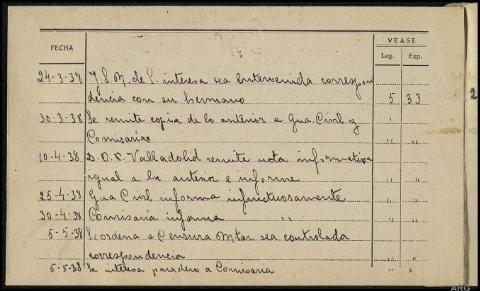 VEASE
FECHA Leg. Exp.
24-3-38 J. S. M. de S. interesa sea intervenida correspon
dencia con su hermano 5 33
30-3-38 Se remite copia de lo anterior a Gua Civil y " "
Comisarias " "
10-4-38 D.O.P. Valladolid remite nota informativa
igual a la anterior e informe " "
25-4-38 Gua Civil informa infructuosamente " "
30-4-38 Comisaria informa " " " "
5-5-38 Se ordena a Censura Mtar sea controlada
correspondencia " "
6-5-38 Se interesa paradero a Comisaria " "
2
ARG